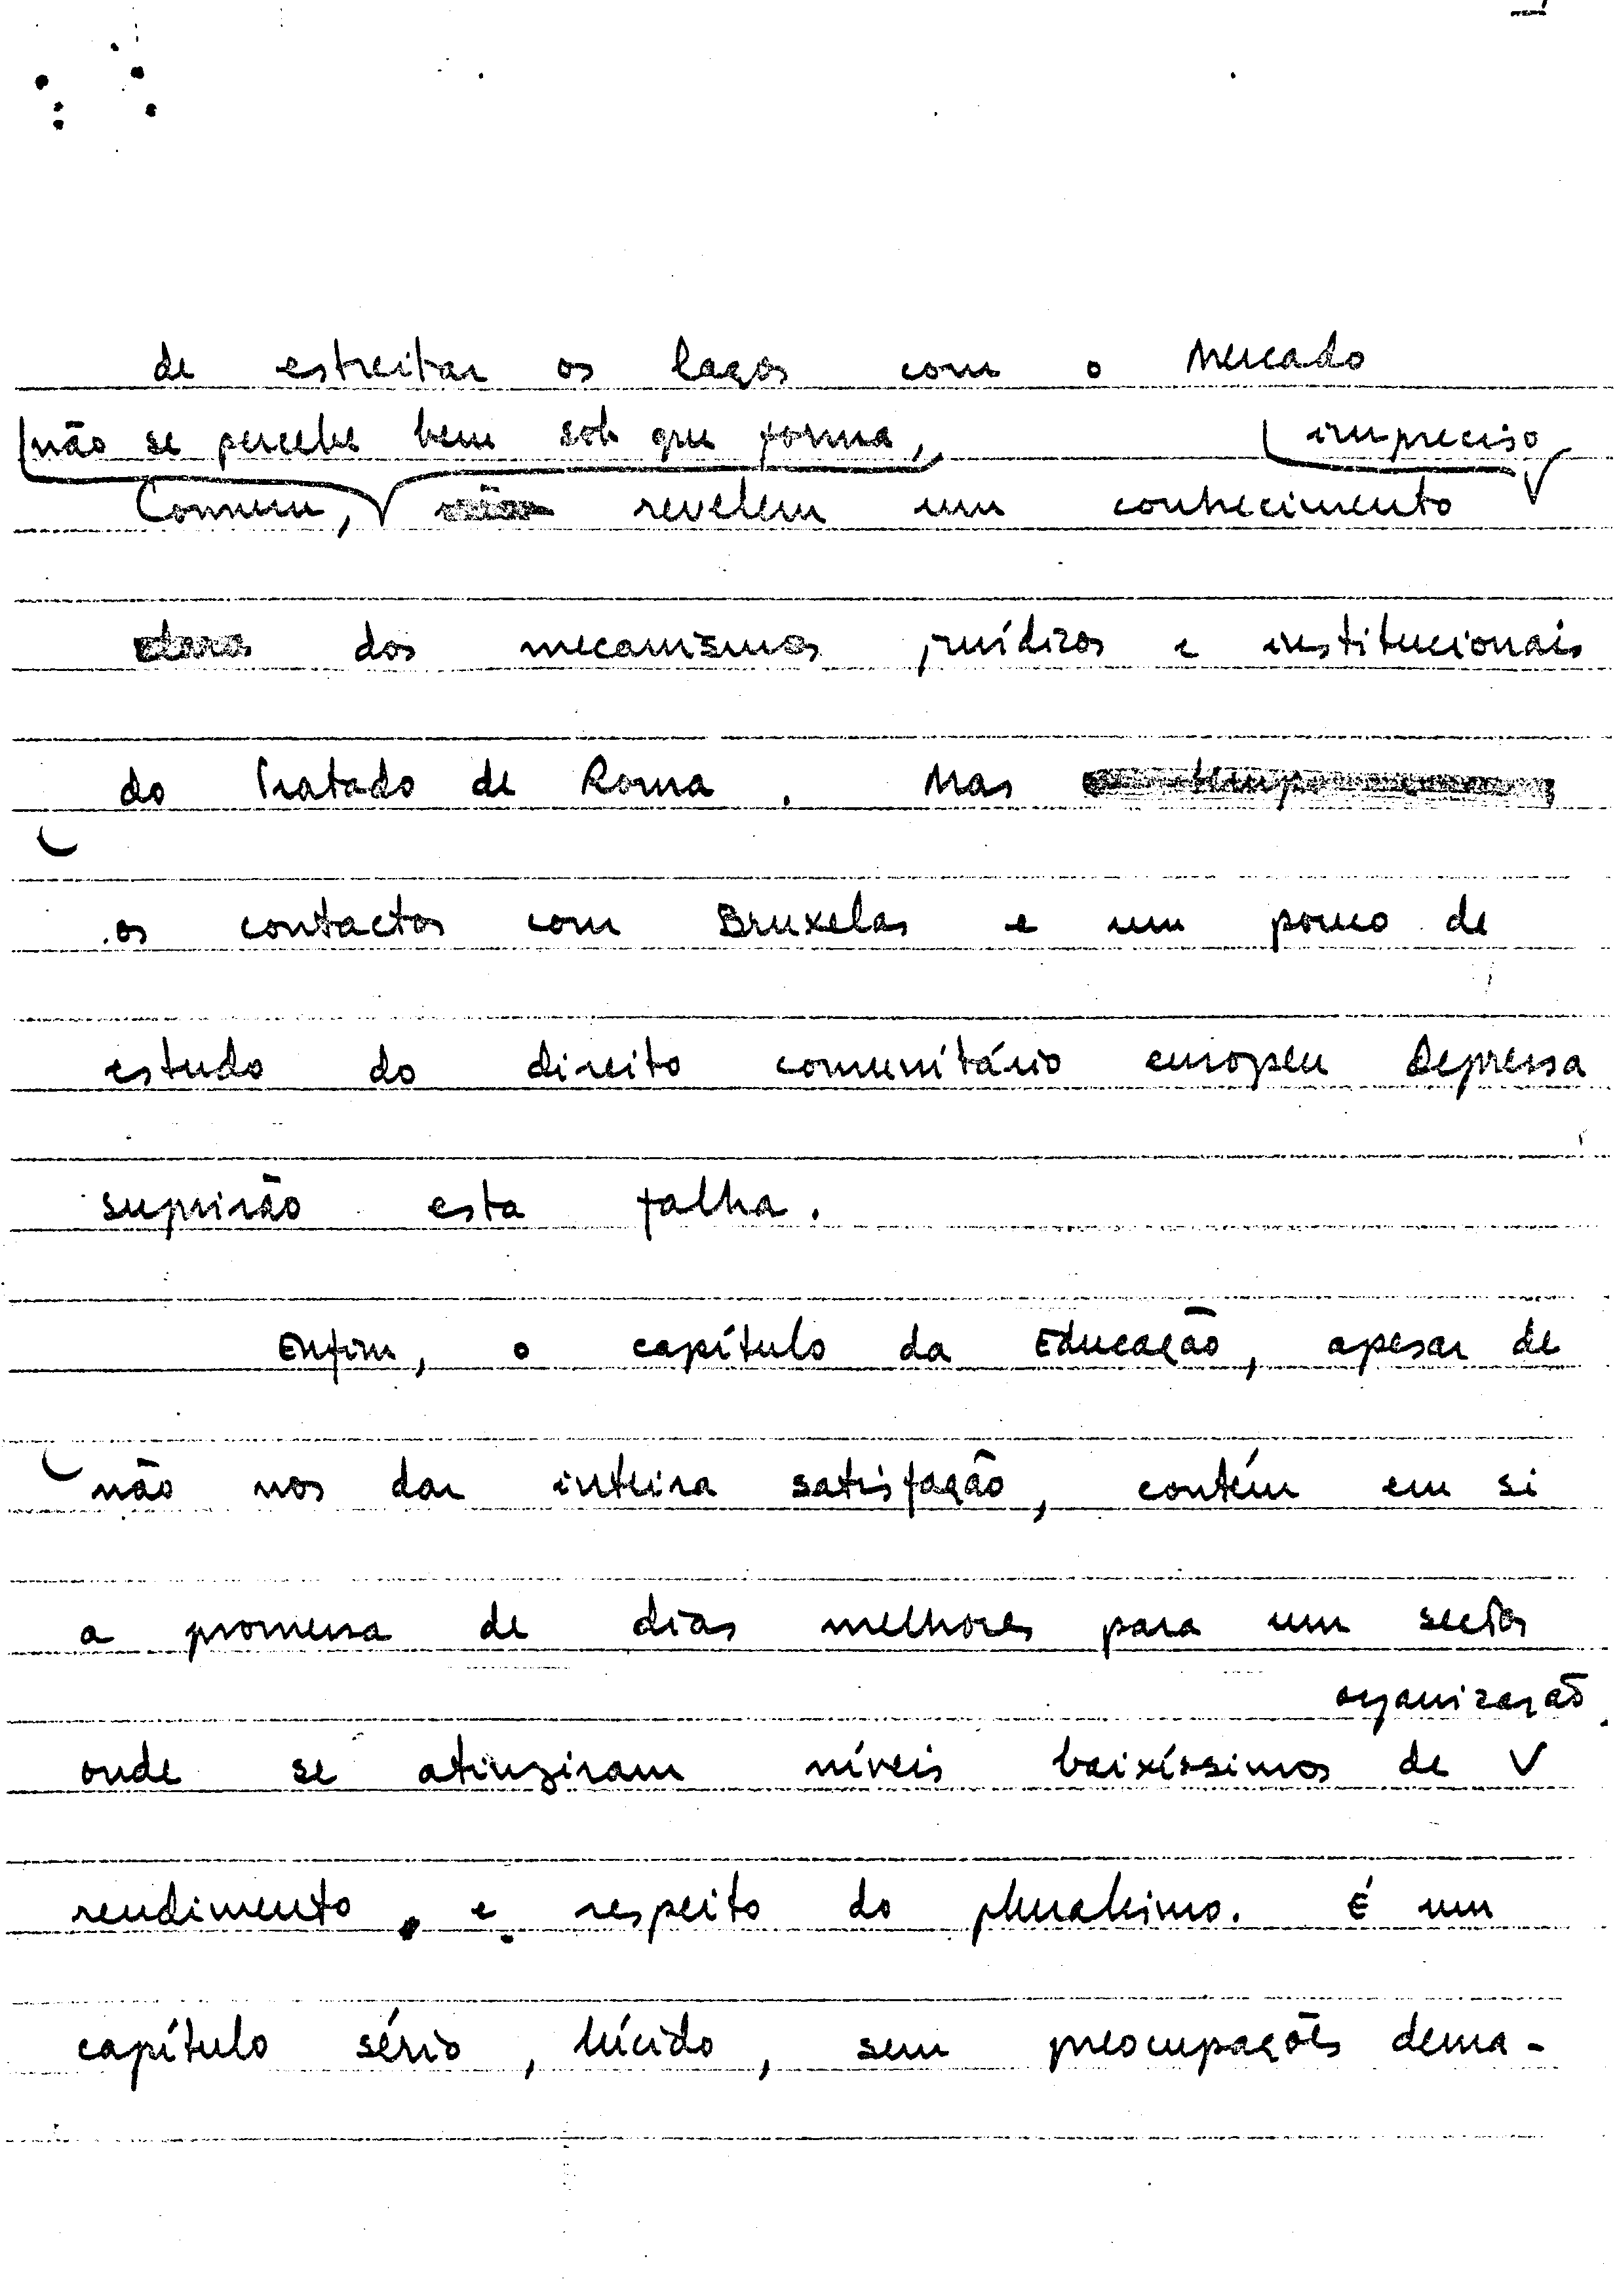 de estreitar os laços com o Mercado
não se percebe bem sob que forma, impreciso
Comum, não revelem um conhecimento
claro dos mecanismos jurídicos e institucionais
do Tratado de Roma. Mas
os contactos com Bruxelas e um pouco de
estudo do direito comunitário europeu depressa
suprirão esta falha.
Enfim, o capítulo da Educação, apesar de
não nos dar inteira satisfação, contém em si
a promessa de dias melhores para um sector
organização
onde se atingiram níveis baixíssimos de
rendimento, e respeito do pluralismo. É um
capítulo sério, lúcido, sem preocupações dema-